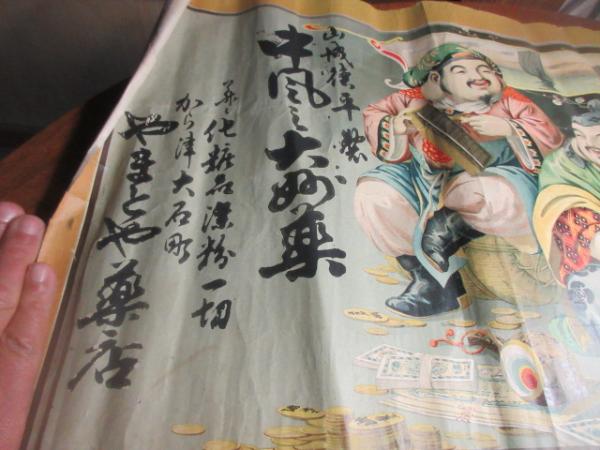 山城猿平製
中風之大妙薬
並ニ化粧品染粉一切
から津大石町
やまとや薬店